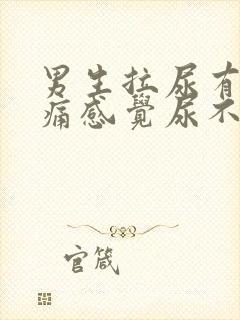 男生拉尿有
痛感覺尿不
官箴